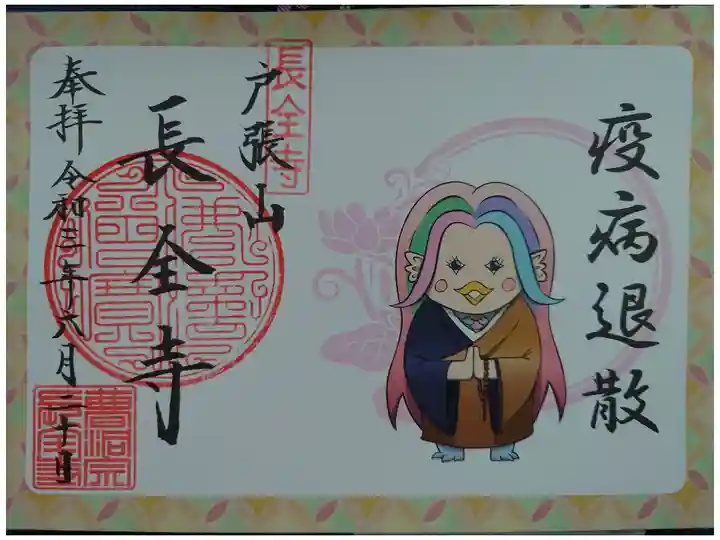 疫病退散
戸張山
長全寺
長全寺
奉拝 令和三年六月二十日